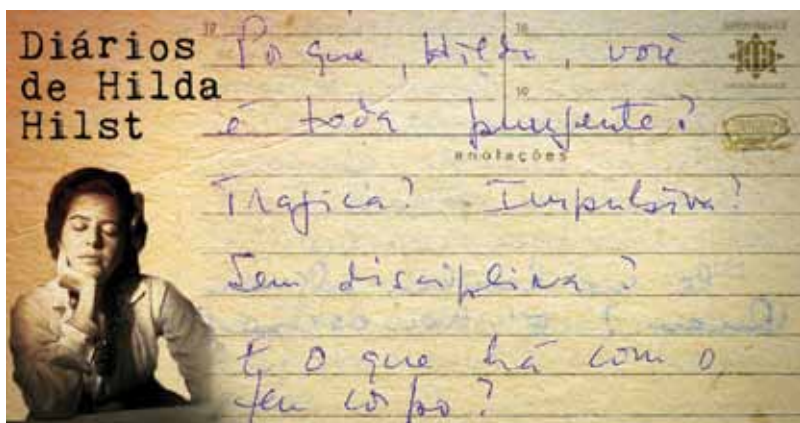 Diários
de Hilda
Hilst
19
18
Por que, Hilda, você
19
é toda pungente?
anotações
Tragica? Impulsiva?
Sem disciplina?
E o que há com o
teu corpo?